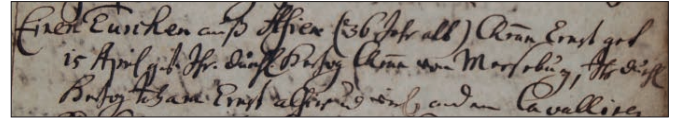 Einen Türcken auß Asien (36 Jahr alt) Ernst get
15 April gef. Ihr. durchl. Hertzog von Merseburg, Ihr durchl
Hertzog Johann Ernst alhier und andern Cavallieren